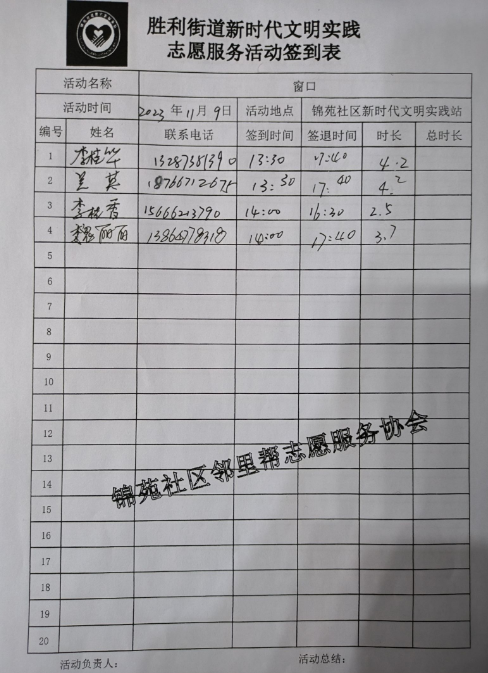 胜利街道新时代文明实践
志愿服务活动签到表
活动名称 窗口
活动时间 2023年11月9日 活动地点 锦苑社区新时代文明实践站
编号 姓名 联系电话 签到时间 签退时间 时长 总时长
1 李桂华 13:30 17:40 4.2
2 吴英 18766712675 13:30 17:40 4.2
3 李桂香 15666213790 14:00 16:30 2.5
4 魏丽丽 13864778318 14:00 17:40 3.7
5
6
7
8
9
10
11
12
13
锦苑社区邻里帮志愿服务协会
14
15
16
17
18
19
20
活动负责人： 活动总结：